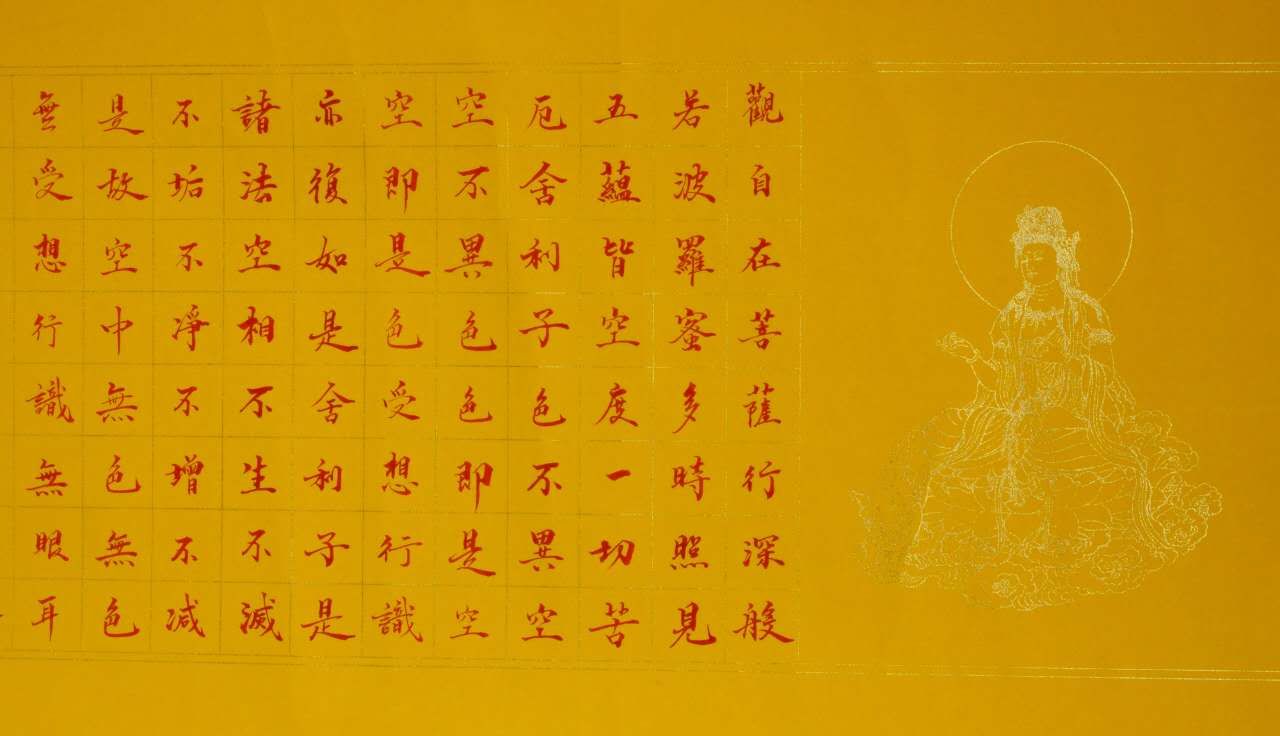 觀自在菩薩行深般
若波羅蜜多時照見
五蘊皆空度一切苦
厄舍利子色不異空
空不異色色即是空
空即是色受想行識
亦復如是舍利子是
諸法空相不生不滅
不垢不淨不增不減
是故空中無色無色
無受想行識無眼耳